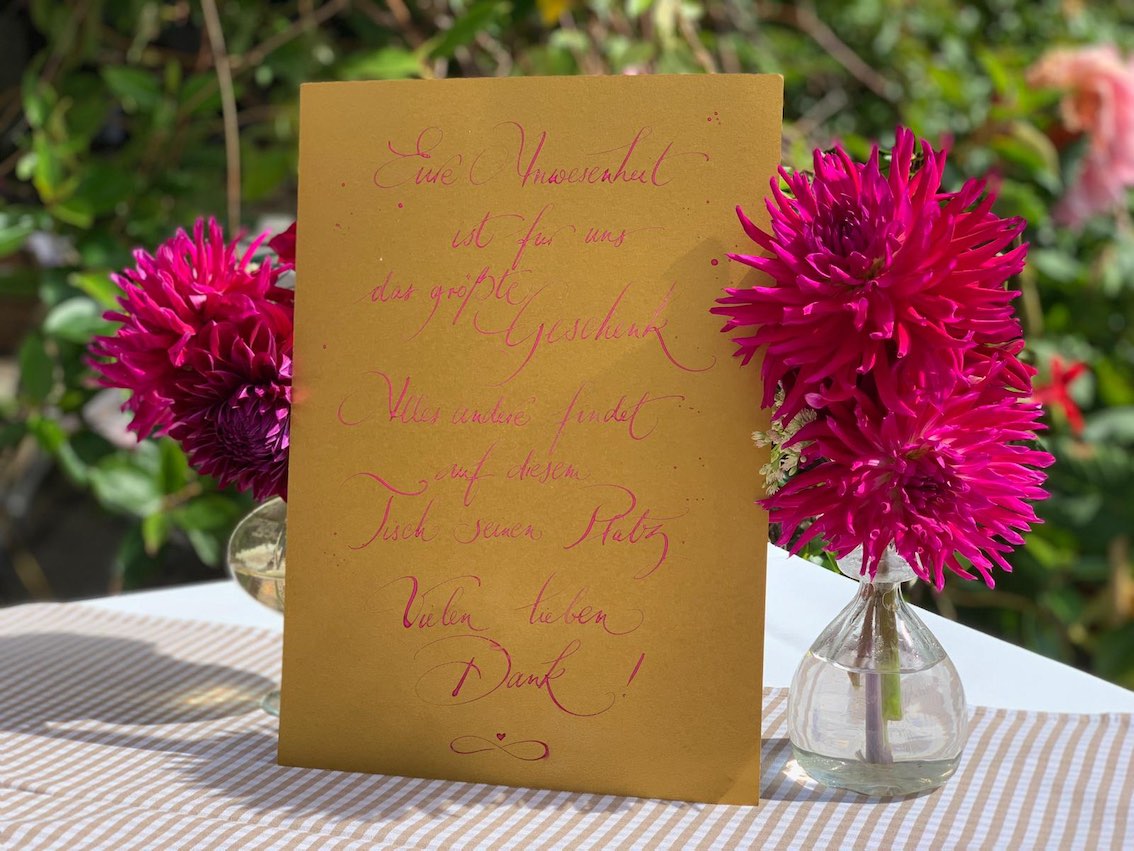 Eure Anwesenheit
ist für uns
das größte
Geschenk
Alles andere findet
auf diesem
Tisch seinen Platz
Vielen lieben
Dank !